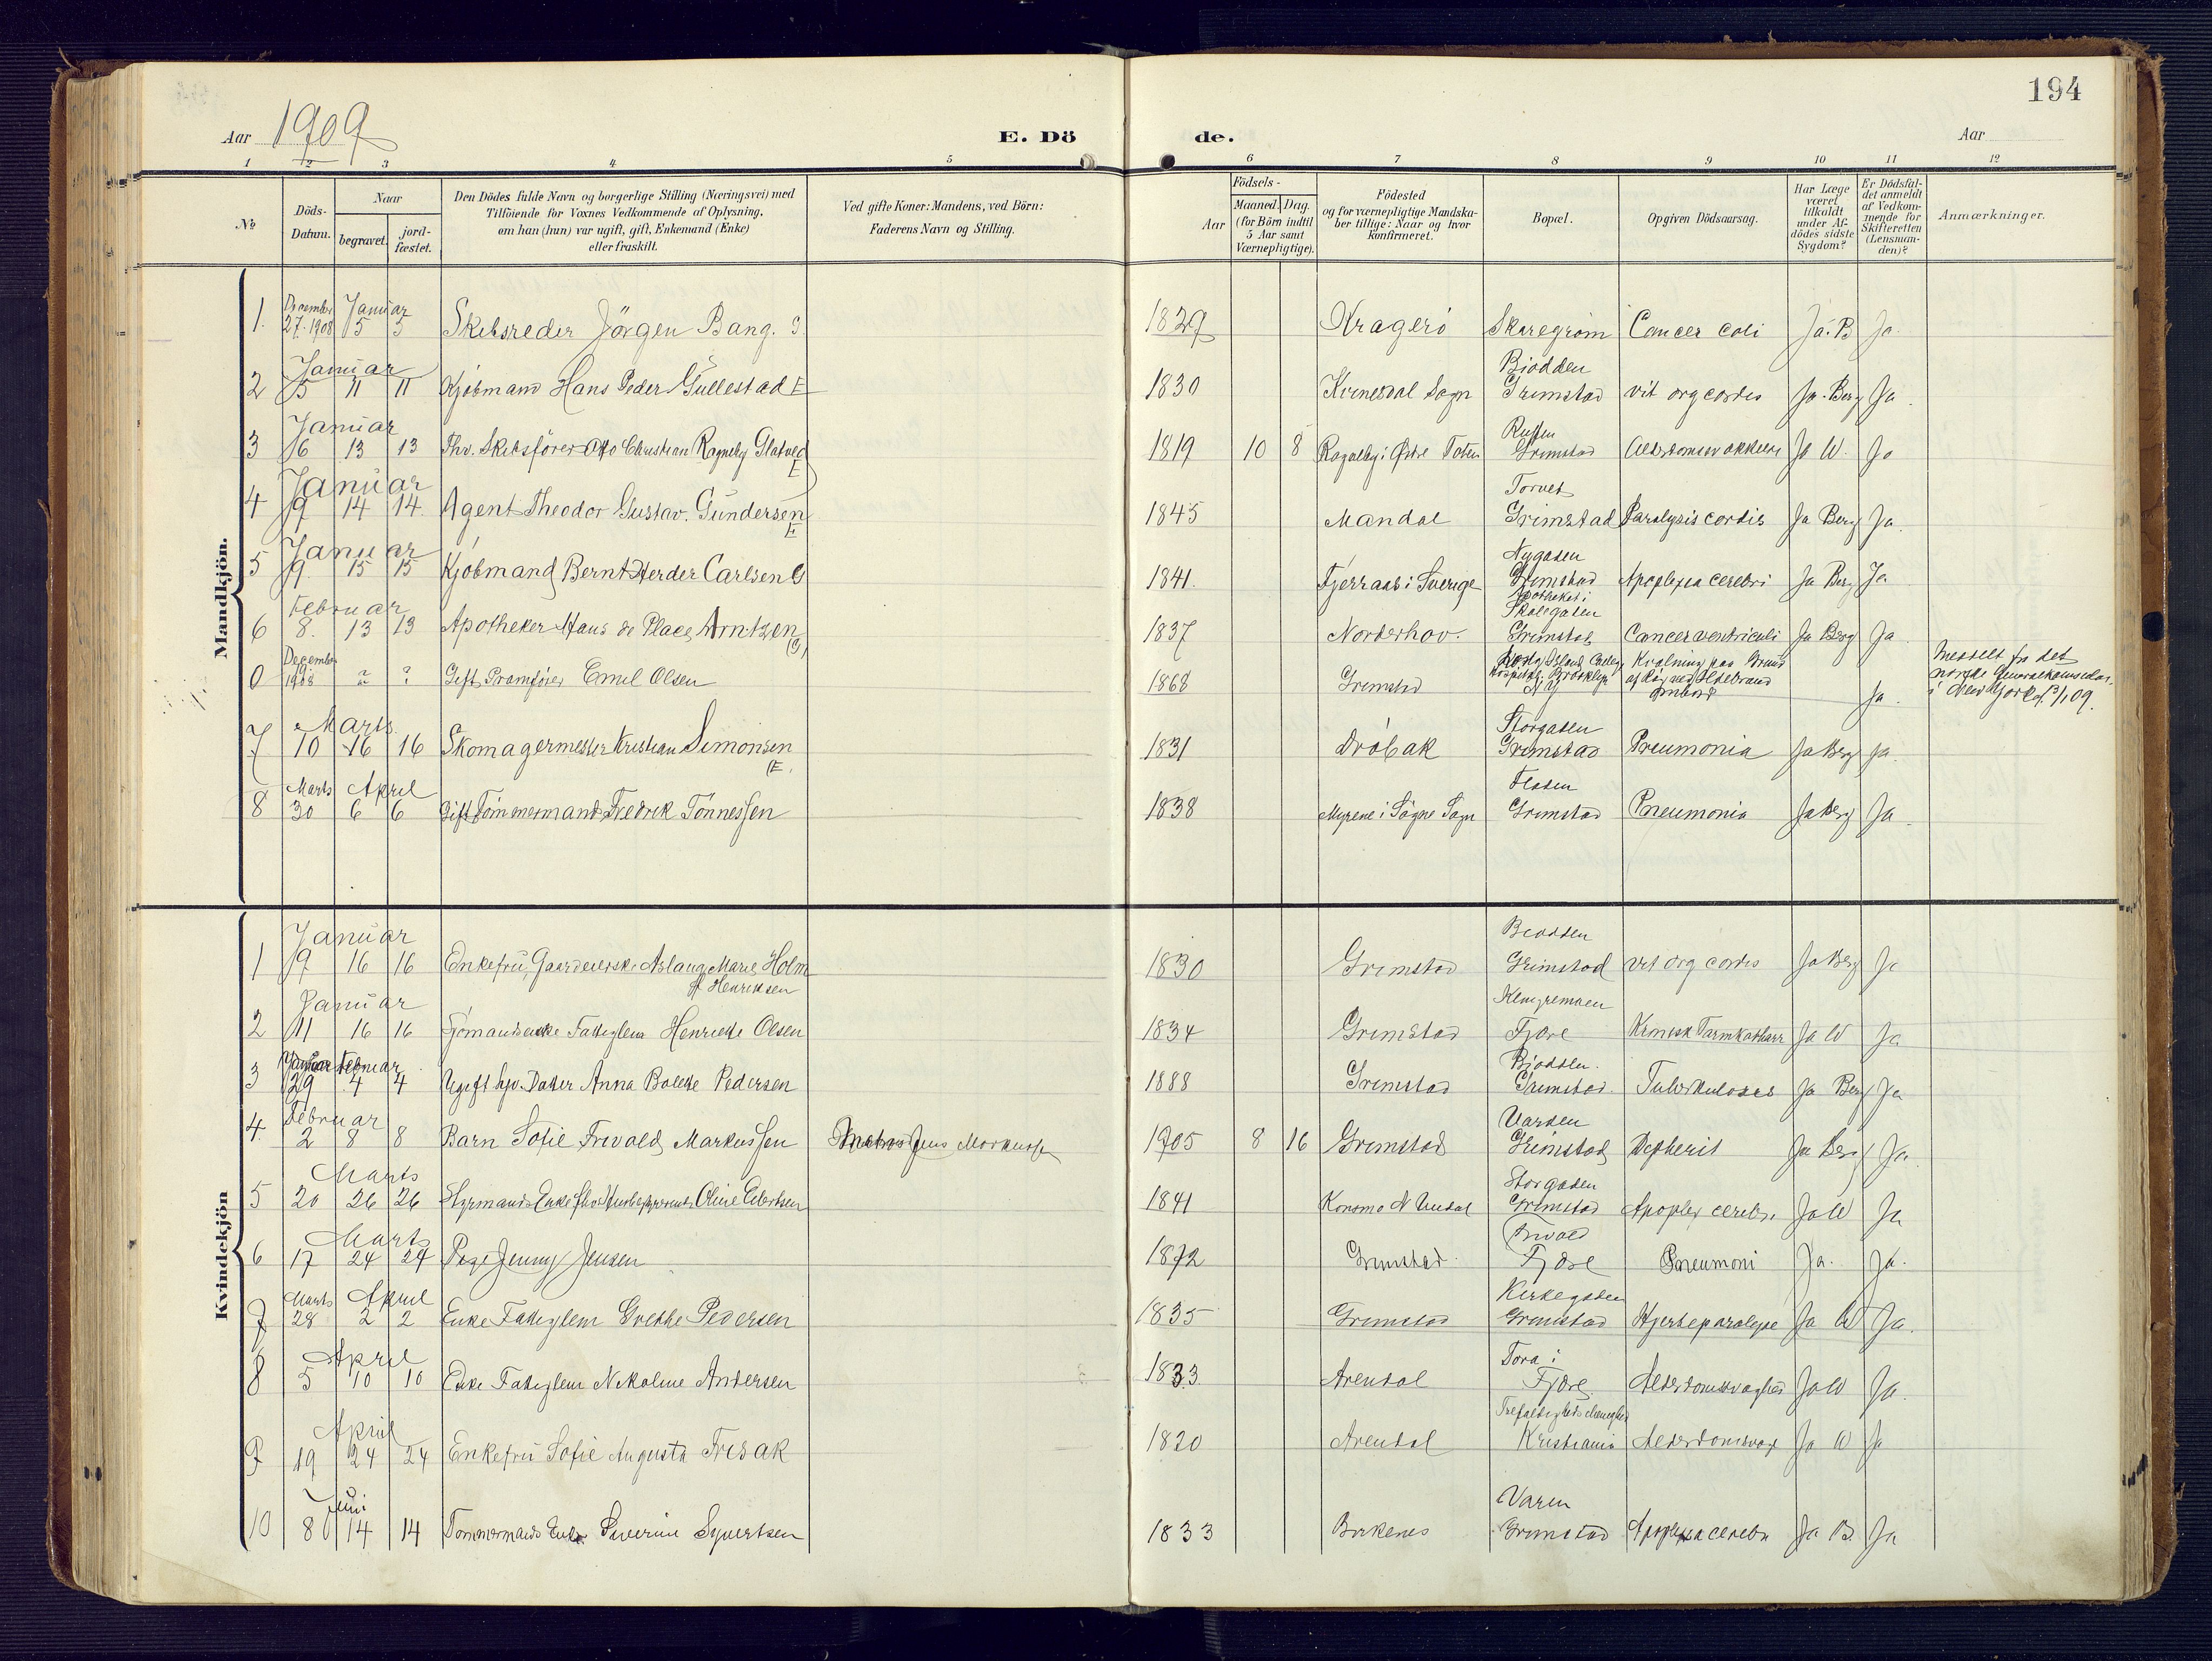 194
Aar 1909 E. Dö de. Aar
1 2 3 4 5 6 7 8 9 10 11 12
№
Döds-
Datum.
Naar
begravet.
jord-
fæstet.
Den Dödes fulde Navn og borgerlige Stilling (Næringsvei) med
Tilföiende for Voxnes Vedkommende af Oplysning,
om han (hun) var ugift, gift, Enkemand (Enke)
eller fraskilt.
Ved gifte Koner: Mandens, ved Börn:
Faderens Navn og Stilling.
Födsels-
Aar
Maaned. Dag.
(for Börn indtil
5 Aar samt
Værnepligtige).
Födested
og for værnepligtige Mandska-
ber tillige: Naar og hvor
konfirmeret.
Bopæl.
Opgiven Dödsaarsag.
Har Læge
været
tilkaldt
under Af-
dödes sidste
Sygdom?
Er Dödsfal-
det anmeldt
af Vedkom-
mende for
Skifteretten
(Lensman-
den)?
Anmærkninger.
Mandkjön.
December Januar
1. 27. 1908 5 5 Skibsreder Jörgen Bang. G. 1829 Kragerö Skaregröm Cancer coli Ja. B Ja.
Januar Biodden
2 5 11 11 Kjöbmand Hans Peder Gullestad E 1830 Kvinesdal Sogn Grimstad vit org cordis Ja. Berg Ja.
Januar
3 6 13 13 Fhv. Skibsförer Otto Christian Rogneby Glatved 1819 10 8 Rogneby i Østre Toten Grimstad Ja W. Ja
E
Januar Torvet
4 9 14 14. Agent Theodor Gustav. Gundersen 1845 Mandal Grimstad Paralysis cordis Ja Berg Ja.
E
Januar Nygaten
5 9. 15 15 Kjöbmand Bernt Herder Carlsen G 1841. i Sverige Grimstad Apoplexia cerebri Ja Berg Ja
Februar Apotheket i
Skolegaten
6 8. 13 13 Apotheker Hans de Place Arntzen 1837 Norderhov. Grimstad Cancer ventriculi Ja Berg Ja
(G)
December
0 1908 ? ? Gift Pramförer Emil Olsen 1868 Grimstad Brooklyn Kvælning paa Grund af Røg ved Ildebrand ombord Ja. Meddelt fra det
norske
i New York
Marts Storgaten
7 10 16 16 Skomagermester Kristian Simonsen 1831 Dröbak Grimstad Pneumonia Ja Berg Ja.
(E.
Marts April
8 30 6 6 Gift Tömmermand Fredrik Tönnessen 1838 Myrene i Sögne Sogn Grimstad Pneumonia Ja Berg Ja.
Kvindekjön
Januar Biodden
1 9 16 16 Enkefru, Gaardeierske Aslaug Marie Holm 1830 Grimstad Grimstad vit org cordis Ja Berg Ja
f. Henriksen
Januar
2 11 16 16 Sjömandsenke Fattiglem Henriette Olsen 1834 Grimstad Fjære Kronisk Tarmkatharr Ja W Ja
Januar Februar Biodden.
3 29 4 4 Ugift Datter Anna Bolette Pedersen 1888 Grimstad Grimstad. Tuberkuloses Ja Berg Ja
Februar Varden
4. 2 8 8 Barn Sofie Frivold Markussen Matros Jens Markussen 1905 8 16 Grimstad Grimstad Defherit Ja Berg Ja
Marts Storgaden
5 20 26 26 Styrmands Enke Oline Eilertsen 1841 Konsmo N Undal Grimstad Apoplex cerebri Ja W Ja
Marts Frivold
6 17 24 24 Pige Jenny Jensen 1872 Grimstad. Fjære Pneumoni Ja. Ja.
Marts April Kirkegaden
7 28 2 2 Enke Fattiglem Grethe Pedersen 1835 Grimstad Grimstad Hjerteparalyse Ja W Ja.
April Tora i
8 5 10 10 Enke Fattiglem Nikoline Andersen 1833. Arendal Fjære Alderdomssvaghed Ja W Ja.
April Trefoldigheds Menighed
9 19 24 24 Enkefru Sofie Augusta Frisak 1820 Arendal Kristiania Alderdomssvag Ja W Ja
Juni
10 8 14 14 Tömmermands Enke Severine Syvertsen 1833 Birkenes Grimstad Apoplexia cerebri Ja B. Ja